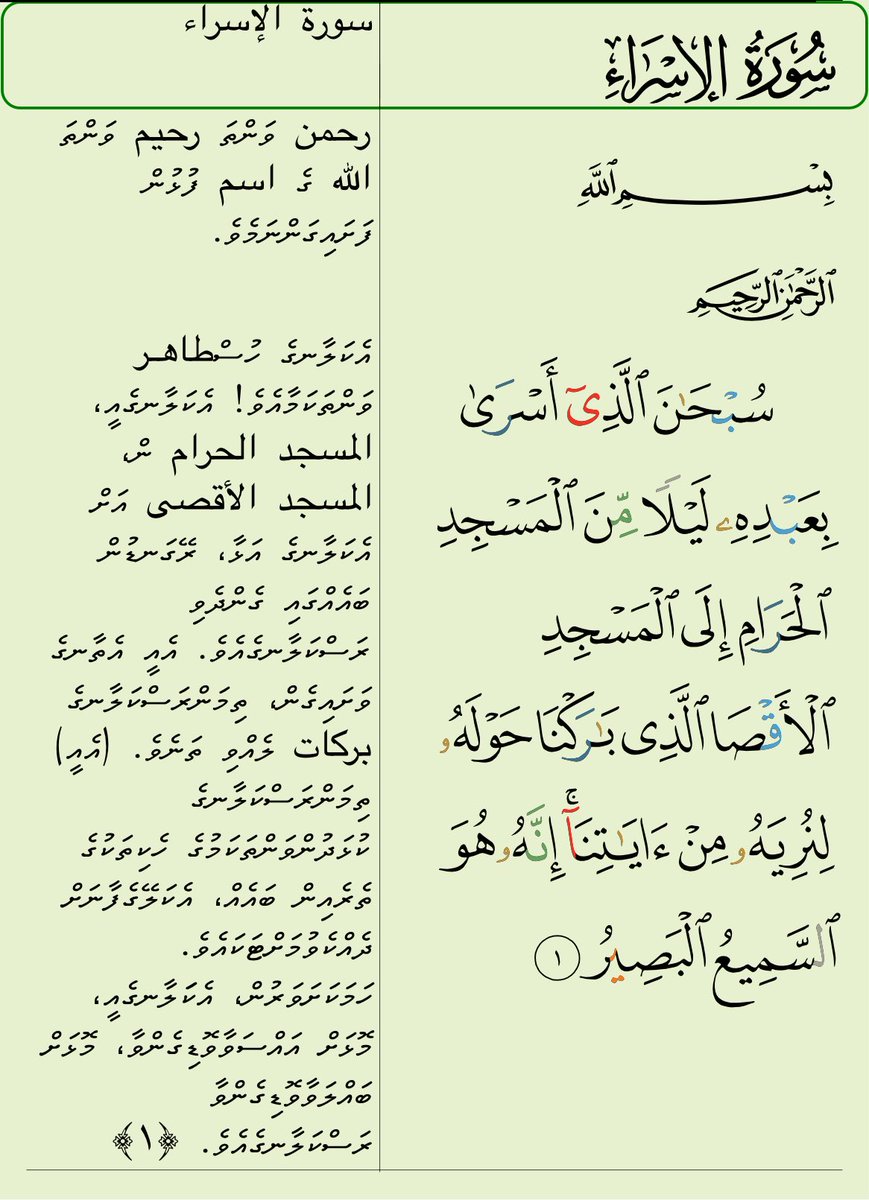 سُورَةُ الإِسْرَاءِ
بِسْمِ ٱللَّهِ
ٱلرَّحْمَٰنِ ٱلرَّحِيمِ
سُبْحَٰنَ ٱلَّذِىٓ أَسْرَىٰ
بِعَبْدِهِۦ لَيْلًا مِّنَ ٱلْمَسْجِدِ
ٱلْحَرَامِ إِلَى ٱلْمَسْجِدِ
ٱلْأَقْصَا ٱلَّذِى بَٰرَكْنَا حَوْلَهُۥ
لِنُرِيَهُۥ مِنْ ءَايَٰتِنَآ ۚ إِنَّهُۥ هُوَ
ٱلسَّمِيعُ ٱلْبَصِيرُ ١
سورة الإسراء
رحمن ވަންތަ رحيم ވަންތަ
الله ގެ اسم ފުޅުން
ފަށައިގަންނަމެވެ.
އެކަލާނގެ ހުސްطاهر
ވަންތަކަމާއެވެ! އެކަލާނގެއީ،
المسجد الحرام ން،
المسجد الأقصى އަށް
އެކަލާނގެ އަޅާ، ރޭގަނޑުން
ބައެއްގައި ގެންދެވި
ރަސްކަލާނގެއެވެ. އެއީ އެތާނގެ
ވަށައިގެން، ތިމަންރަސްކަލާނގެ
بركات ލެއްވި ތަނެވެ. (އެއީ)
ތިމަންރަސްކަލާނގެ
ކުޅަދުންވަންތަކަމުގެ ހެކިތަކުގެ
ތެރެއިން ބައެއް، އެކަލޭގެފާނަށް
ދެއްކެވުމަށްޓަކައެވެ.
ހަމަކަށަވަރުން، އެކަލާނގެއީ،
މޮޅަށް އައްސަވާވޮޑިގެންވާ، މޮޅަށް
ބައްލަވާވޮޑިގެންވާ
ރަސްކަލާނގެއެވެ. ﴿١﴾